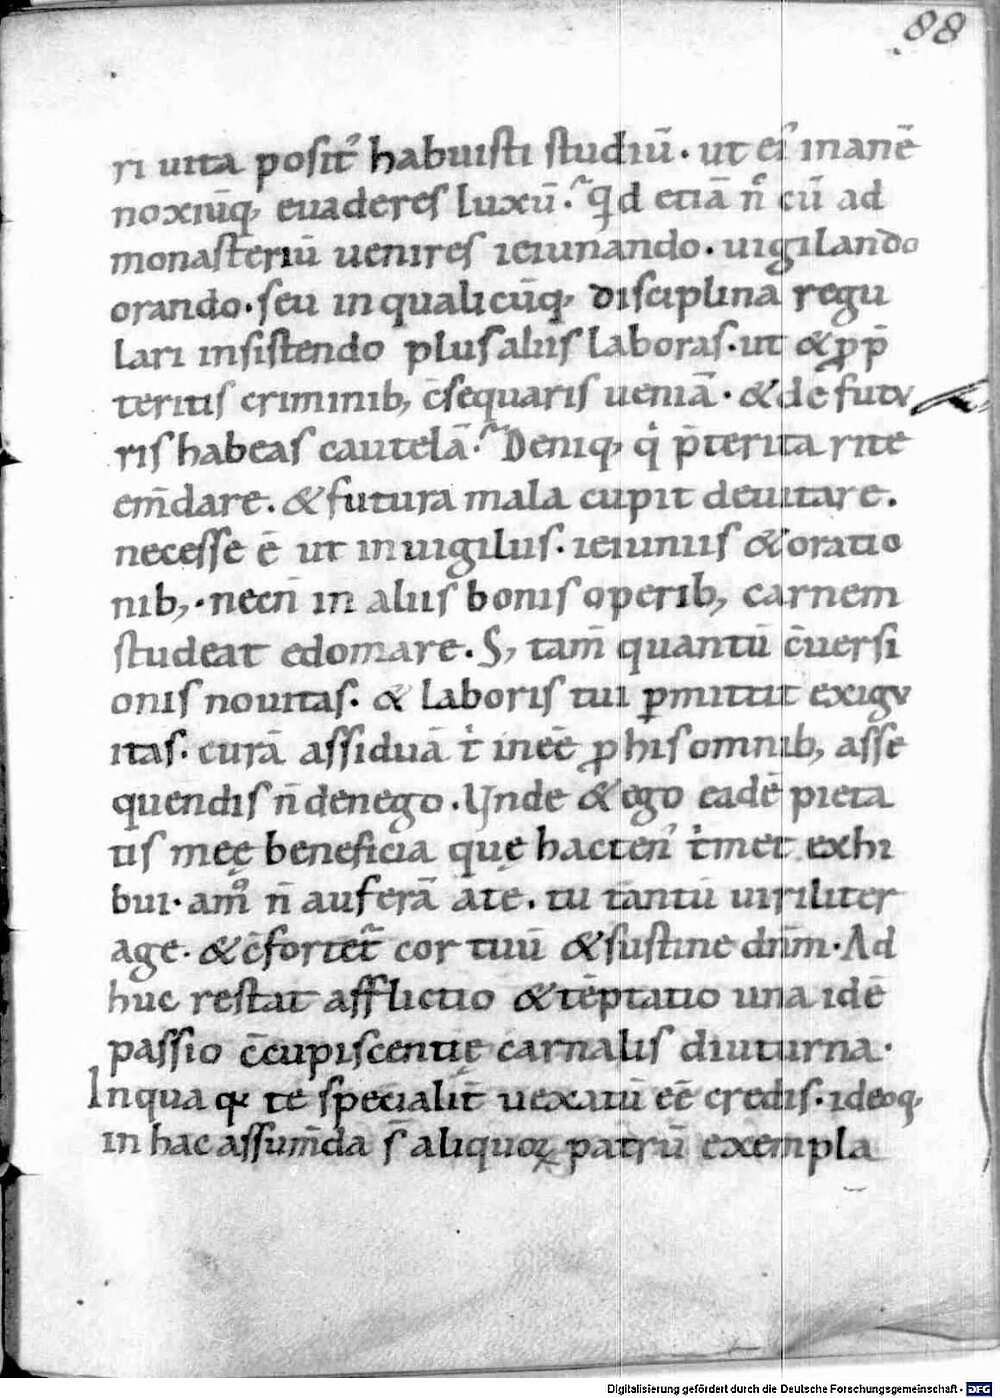 88
ri uita posit᾽ habuisti studiū. ut ei᾽ inanē
noxiūq; euaderes luxū. qd etiā n̄ cū ad
monasteriū uenires ieiunando. uigilando
orando. seu in qualicūq; disciplina regu
lari insistendo plus aliis laboras. ut & ꝓ p̄
teritis criminib; c̄sequaris ueniā. & de futu
ris habeas cautelā. Deniq; qi p̄terita rite
em̄dare. & futura mala cupit deuitare.
necesse ē ut in uigiliis. ieiuniis & oratio
nib;. necn̄ in aliis bonis operib; carnem
studeat edomare. S; tam̄ quantū c̄uersi
onis nouitas. & laboris tui ꝑmittit exigu
itas. curā assiduā ti ineē ꝓ his omnib; asse
quendis n̄ denego. Unde & ego eadē pieta
tis meę beneficia quę hacten᾽ timet exhi
bui. amo᷒ n̄ auferā a te. tu tantū uiriliter
age. & c̄fortet᷑ cor tuū & sustine dn̄m. Ad
huc restat afflictio & tēptatio una idē
passio c̄cupiscentię carnalis diuturna.
In qua qꝛ te specialit̄ uexatū eē credis. ideoq;
in hac assum̄da s̄ aliquoꝝ patrū exempla
Digitalisierung gefördert durch die Deutsche Forschungsgemeinschaft - DFG